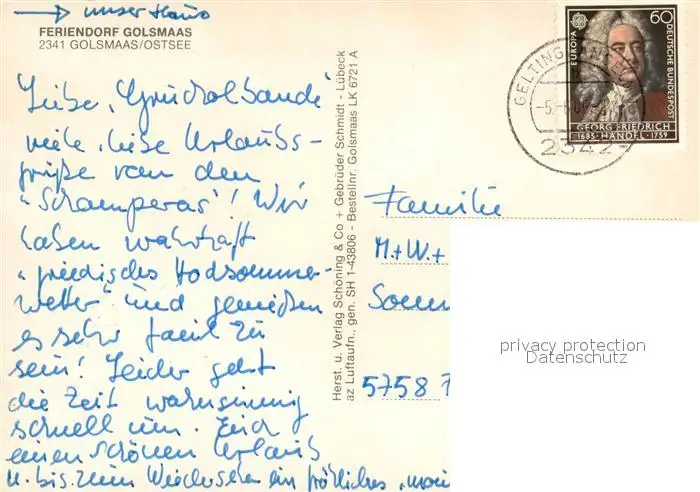 → unser Haus
FERIENDORF GOLSMAAS
2341 GOLSMAAS/OSTSEE
Liebe
viele, liebe Urlaubs-
grüße von den
"Scamperas"! Wir
haben wahrhaft
"griechisches Hochsommer-
wetter" und genießen
es sehr faul zu
sein! Leider geht
die Zeit wahnsinnig
schnell um. Euch
einen schönen Urlaub
u. bis zum Wiedersehen ein fröhliches "moi
Herst. u. Verlag Schöning & Co + Gebrüder Schmidt - Lübeck
az Luftaufn., gen. SH 1-43806 - Bestellnr. Golsmaas LK 6721 A
EUROPA
60
DEUTSCHE BUNDESPOST
GEORG FRIEDRICH
1685 · HÄNDEL · 1759
GELTING
2342
Familie
M.+W.+
5758
privacy protection
Datenschutz